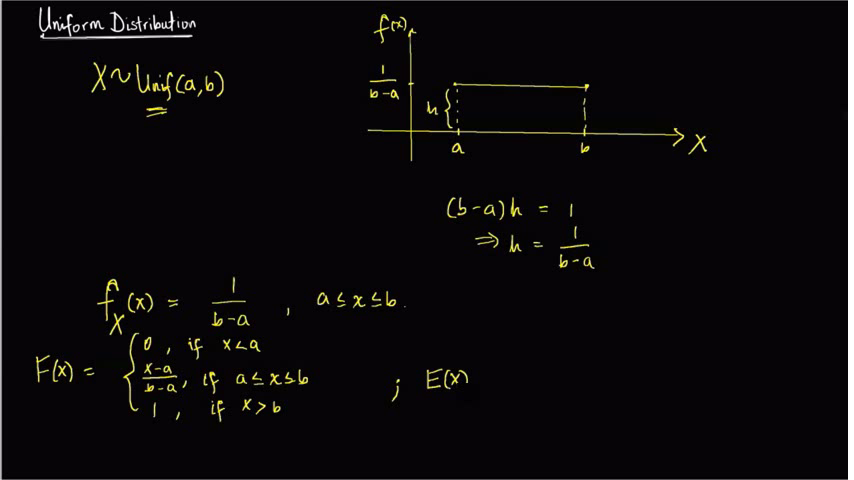 Uniform Distribution
X ~ Unif(a,b)
f(x)
1/(b-a)
h {
a b X
(b-a)h = 1
⇒ h = 1/(b-a)
f_X(x) = 1/(b-a) , a ≤ x ≤ b.
F(x) = { 0 , if x < a
(x-a)/(b-a) , if a ≤ x ≤ b
1 , if x > b
; E(X)